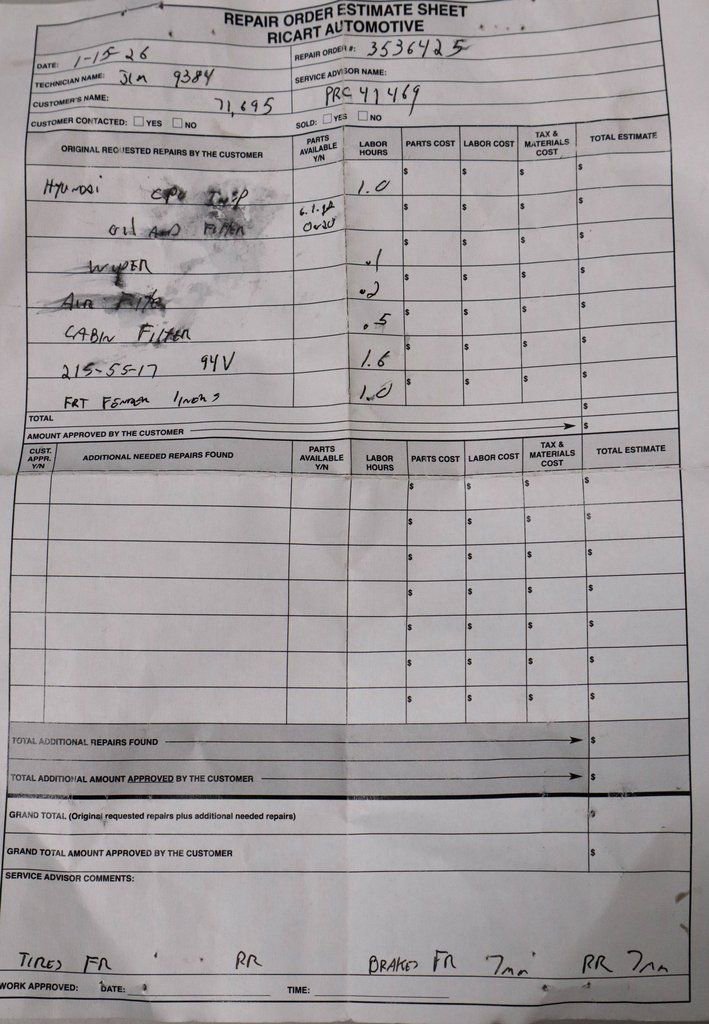 REPAIR ORDER ESTIMATE SHEET
RICART AUTOMOTIVE
DATE: 1-15-26
REPAIR ORDER #: 3536425
TECHNICIAN NAME: Jim 9384
SERVICE ADVISOR NAME:
CUSTOMER'S NAME: 71,695
PRC 41469
CUSTOMER CONTACTED: YES NO
SOLD: YES NO
ORIGINAL REQUESTED REPAIRS BY THE CUSTOMER PARTS AVAILABLE Y/N LABOR HOURS PARTS COST LABOR COST TAX & MATERIALS COST TOTAL ESTIMATE
Hyundai CPO Insp 1.0 $ $ $ $
Oil AND Filter 0W20 $ $ $ $
WyPER .1 $ $ $ $
AIR Filter .2 $ $ $ $
CABIN Filter .5 $ $ $ $
215-55-17 94V 1.6 $ $ $ $
FRT FENDER liners 1.0 $ $ $ $
TOTAL $
AMOUNT APPROVED BY THE CUSTOMER $
CUST. APPR. Y/N ADDITIONAL NEEDED REPAIRS FOUND PARTS AVAILABLE Y/N LABOR HOURS PARTS COST LABOR COST TAX & MATERIALS COST TOTAL ESTIMATE
$ $ $ $
$ $ $ $
$ $ $ $
$ $ $ $
$ $ $ $
$ $ $ $
$ $ $ $
TOTAL ADDITIONAL REPAIRS FOUND $
TOTAL ADDITIONAL AMOUNT APPROVED BY THE CUSTOMER $
GRAND TOTAL (Original requested repairs plus additional needed repairs) $
GRAND TOTAL AMOUNT APPROVED BY THE CUSTOMER $
SERVICE ADVISOR COMMENTS:
TIRES FR RR BRAKES FR 7mm RR 7mm
WORK APPROVED: DATE: TIME: